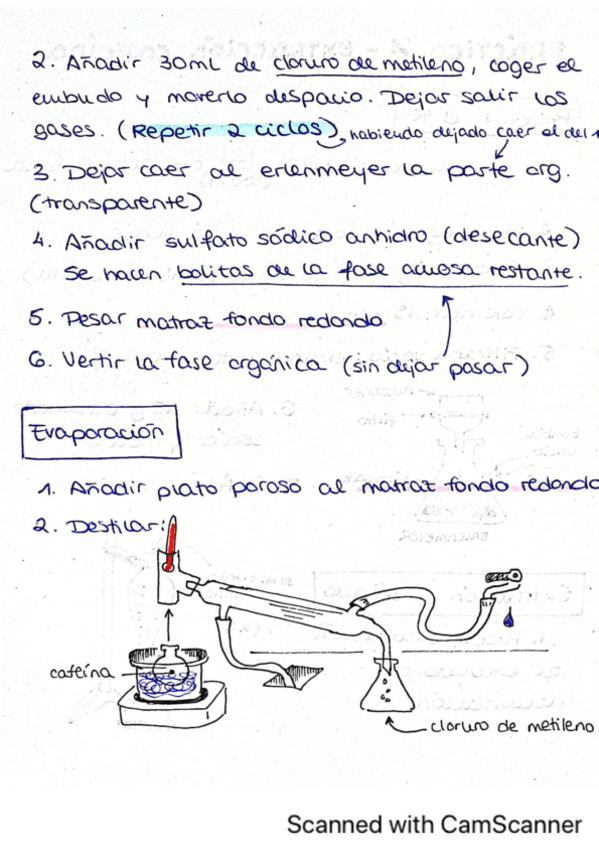 2. Añadir 30mL de cloruro de metileno, coger el
embudo y moverlo despacio. Dejar salir los
gases. (Repetir 2 ciclos), habiendo dejado caer el del 1
3. Dejar caer al erlenmeyer la parte org.
(transparente)
4. Añadir sulfato sódico anhidro (desecante)
Se hacen bolitas de la fase acuosa restante.
5. Pesar matraz fondo redondo
6. Vertir la fase orgánica (sin dejar pasar)
Evaporación
1. Añadir plato poroso al matraz fondo redondo
2. Destilar:
cafeína
cloruro de metileno
Scanned with CamScanner